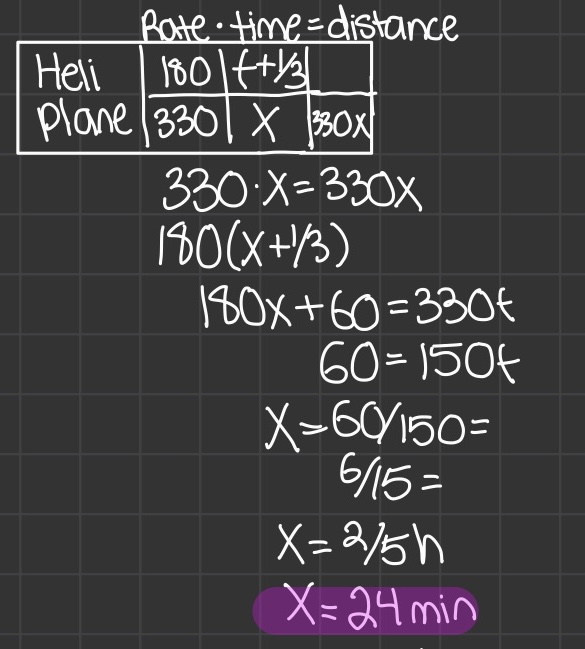 Rate · time = distance
Heli 180 t+1/3
Plane 330 X 330x
330·X=330x
180(x+1/3)
180x+60=330t
60=150t
X=60/150=
6/15=
X=2/5h
X=24min